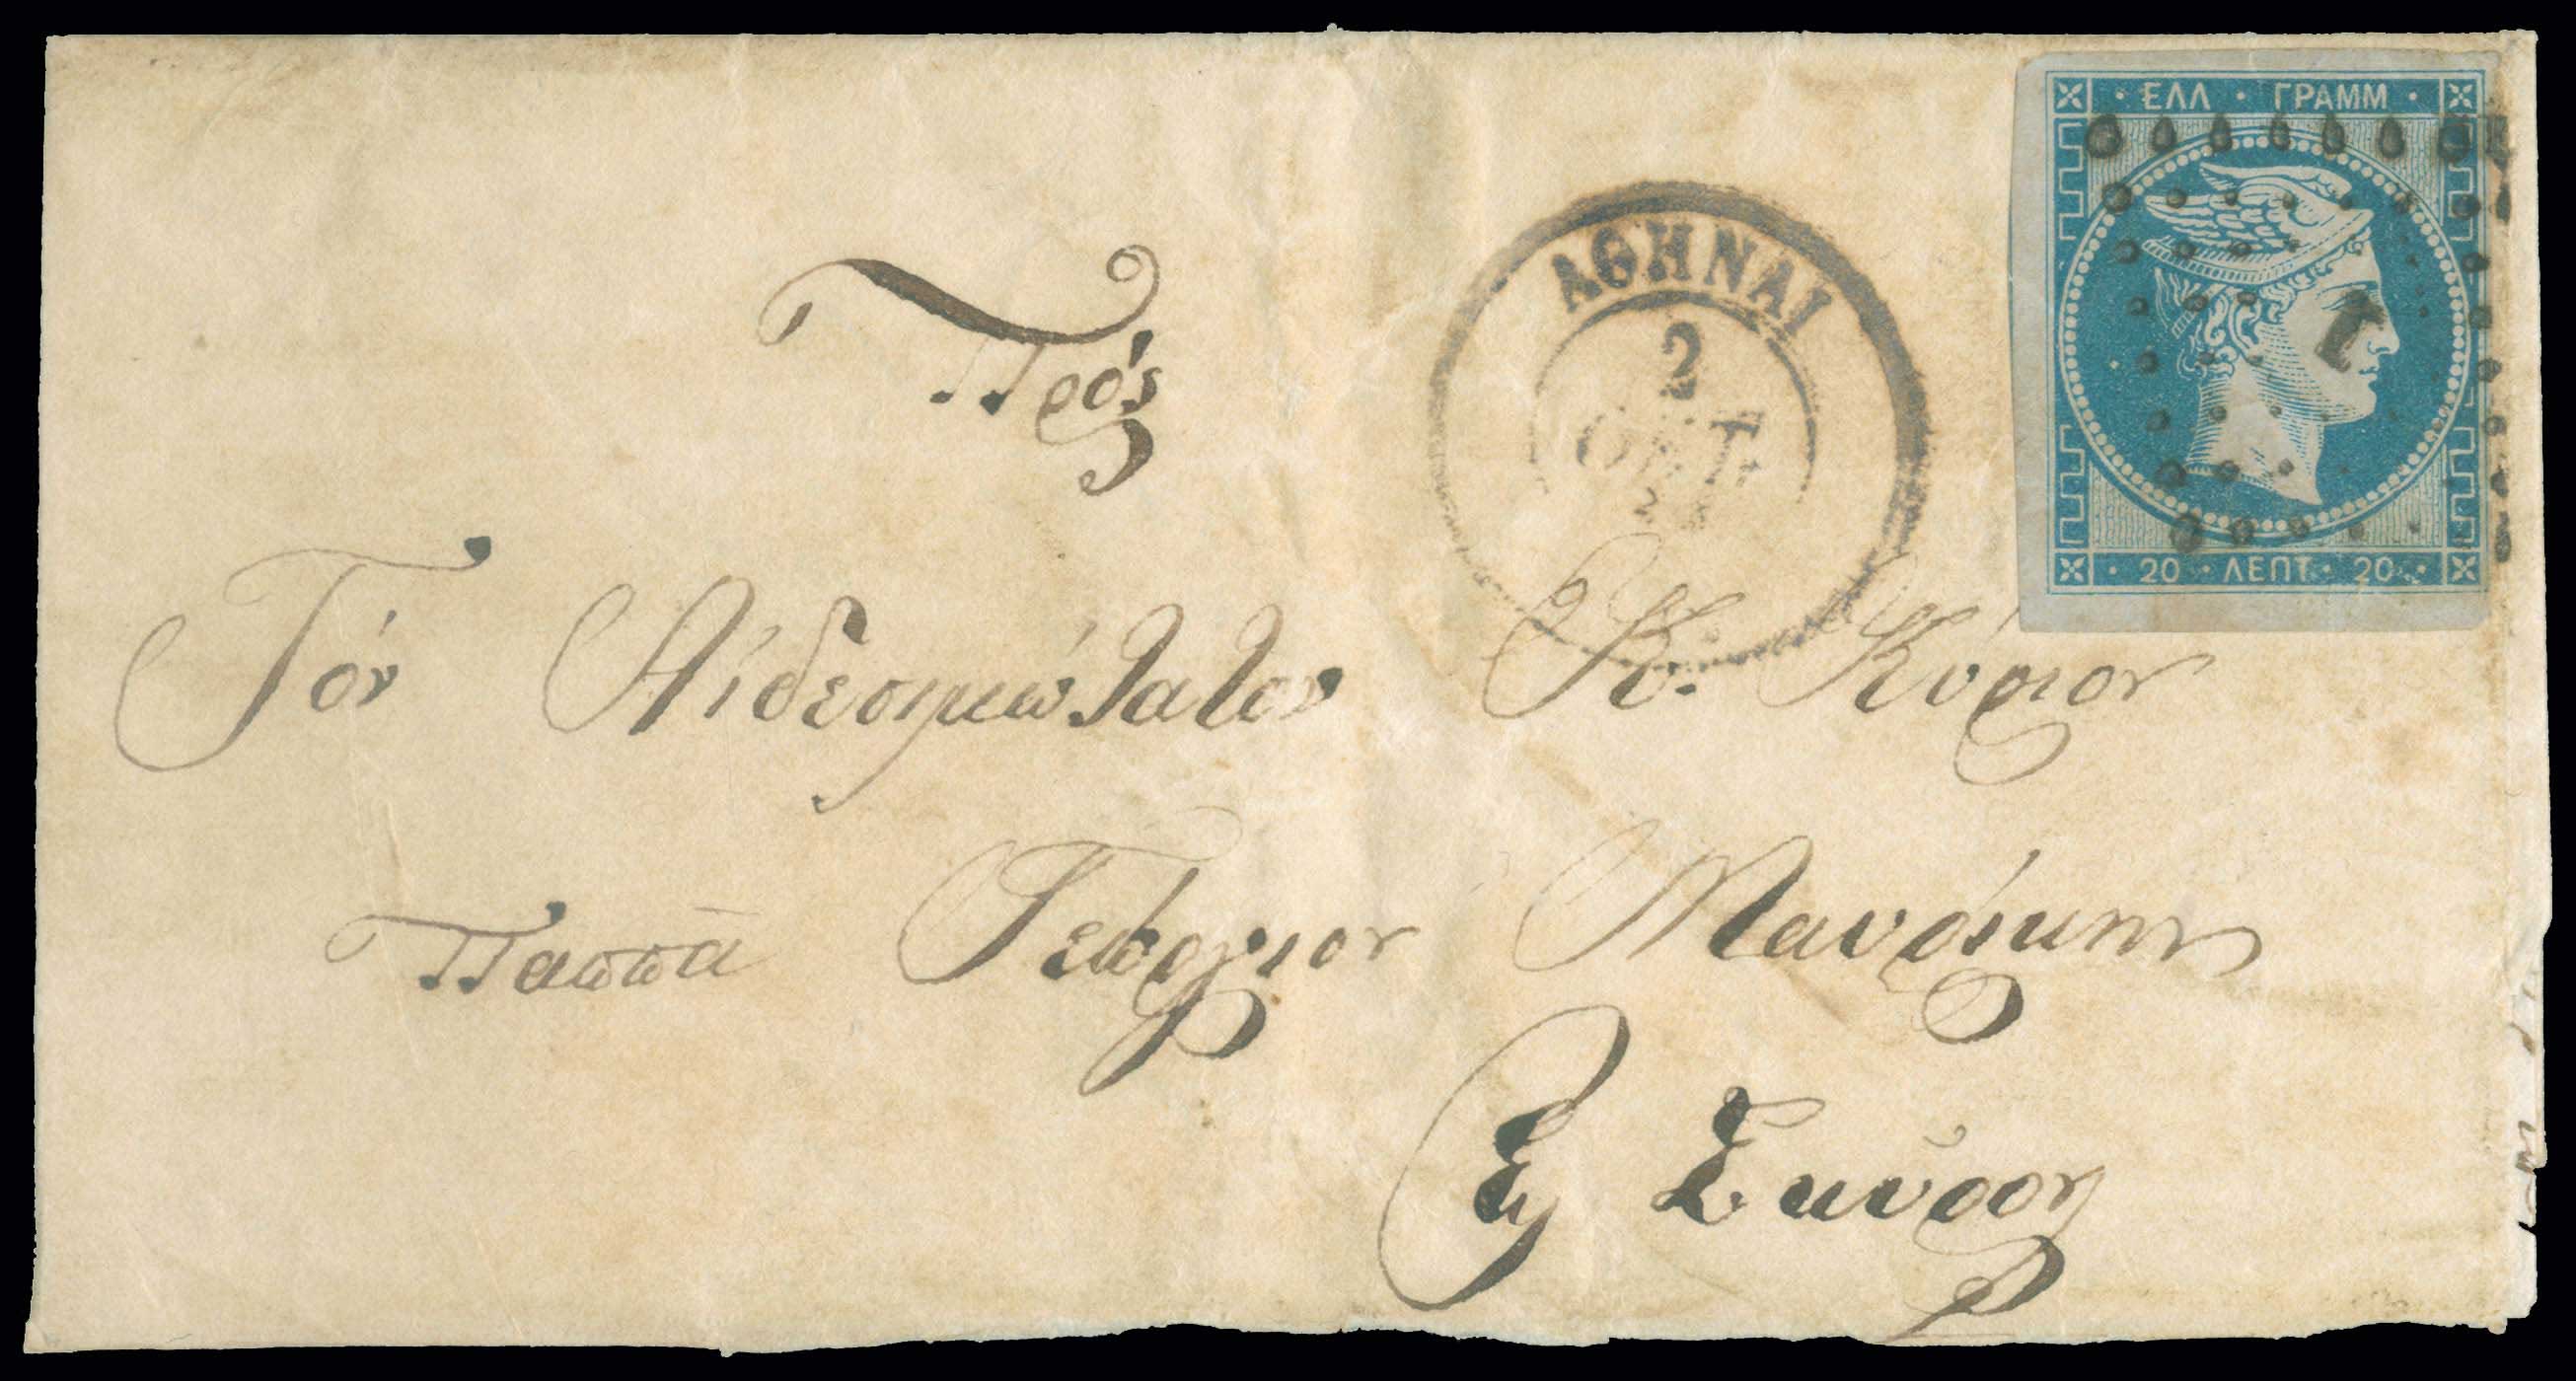 ΕΛΛ · ΓΡΑΜΜ
1
20 · ΛΕΠΤ · 20
ΑΘΗΝΑΙ
2
ΟΚΤ.
Πρός
Τόν Αἰδεσιμώτατον Κ. Κύριον
Παππᾶ Γεώργιον
Εἰς Σκῦρον